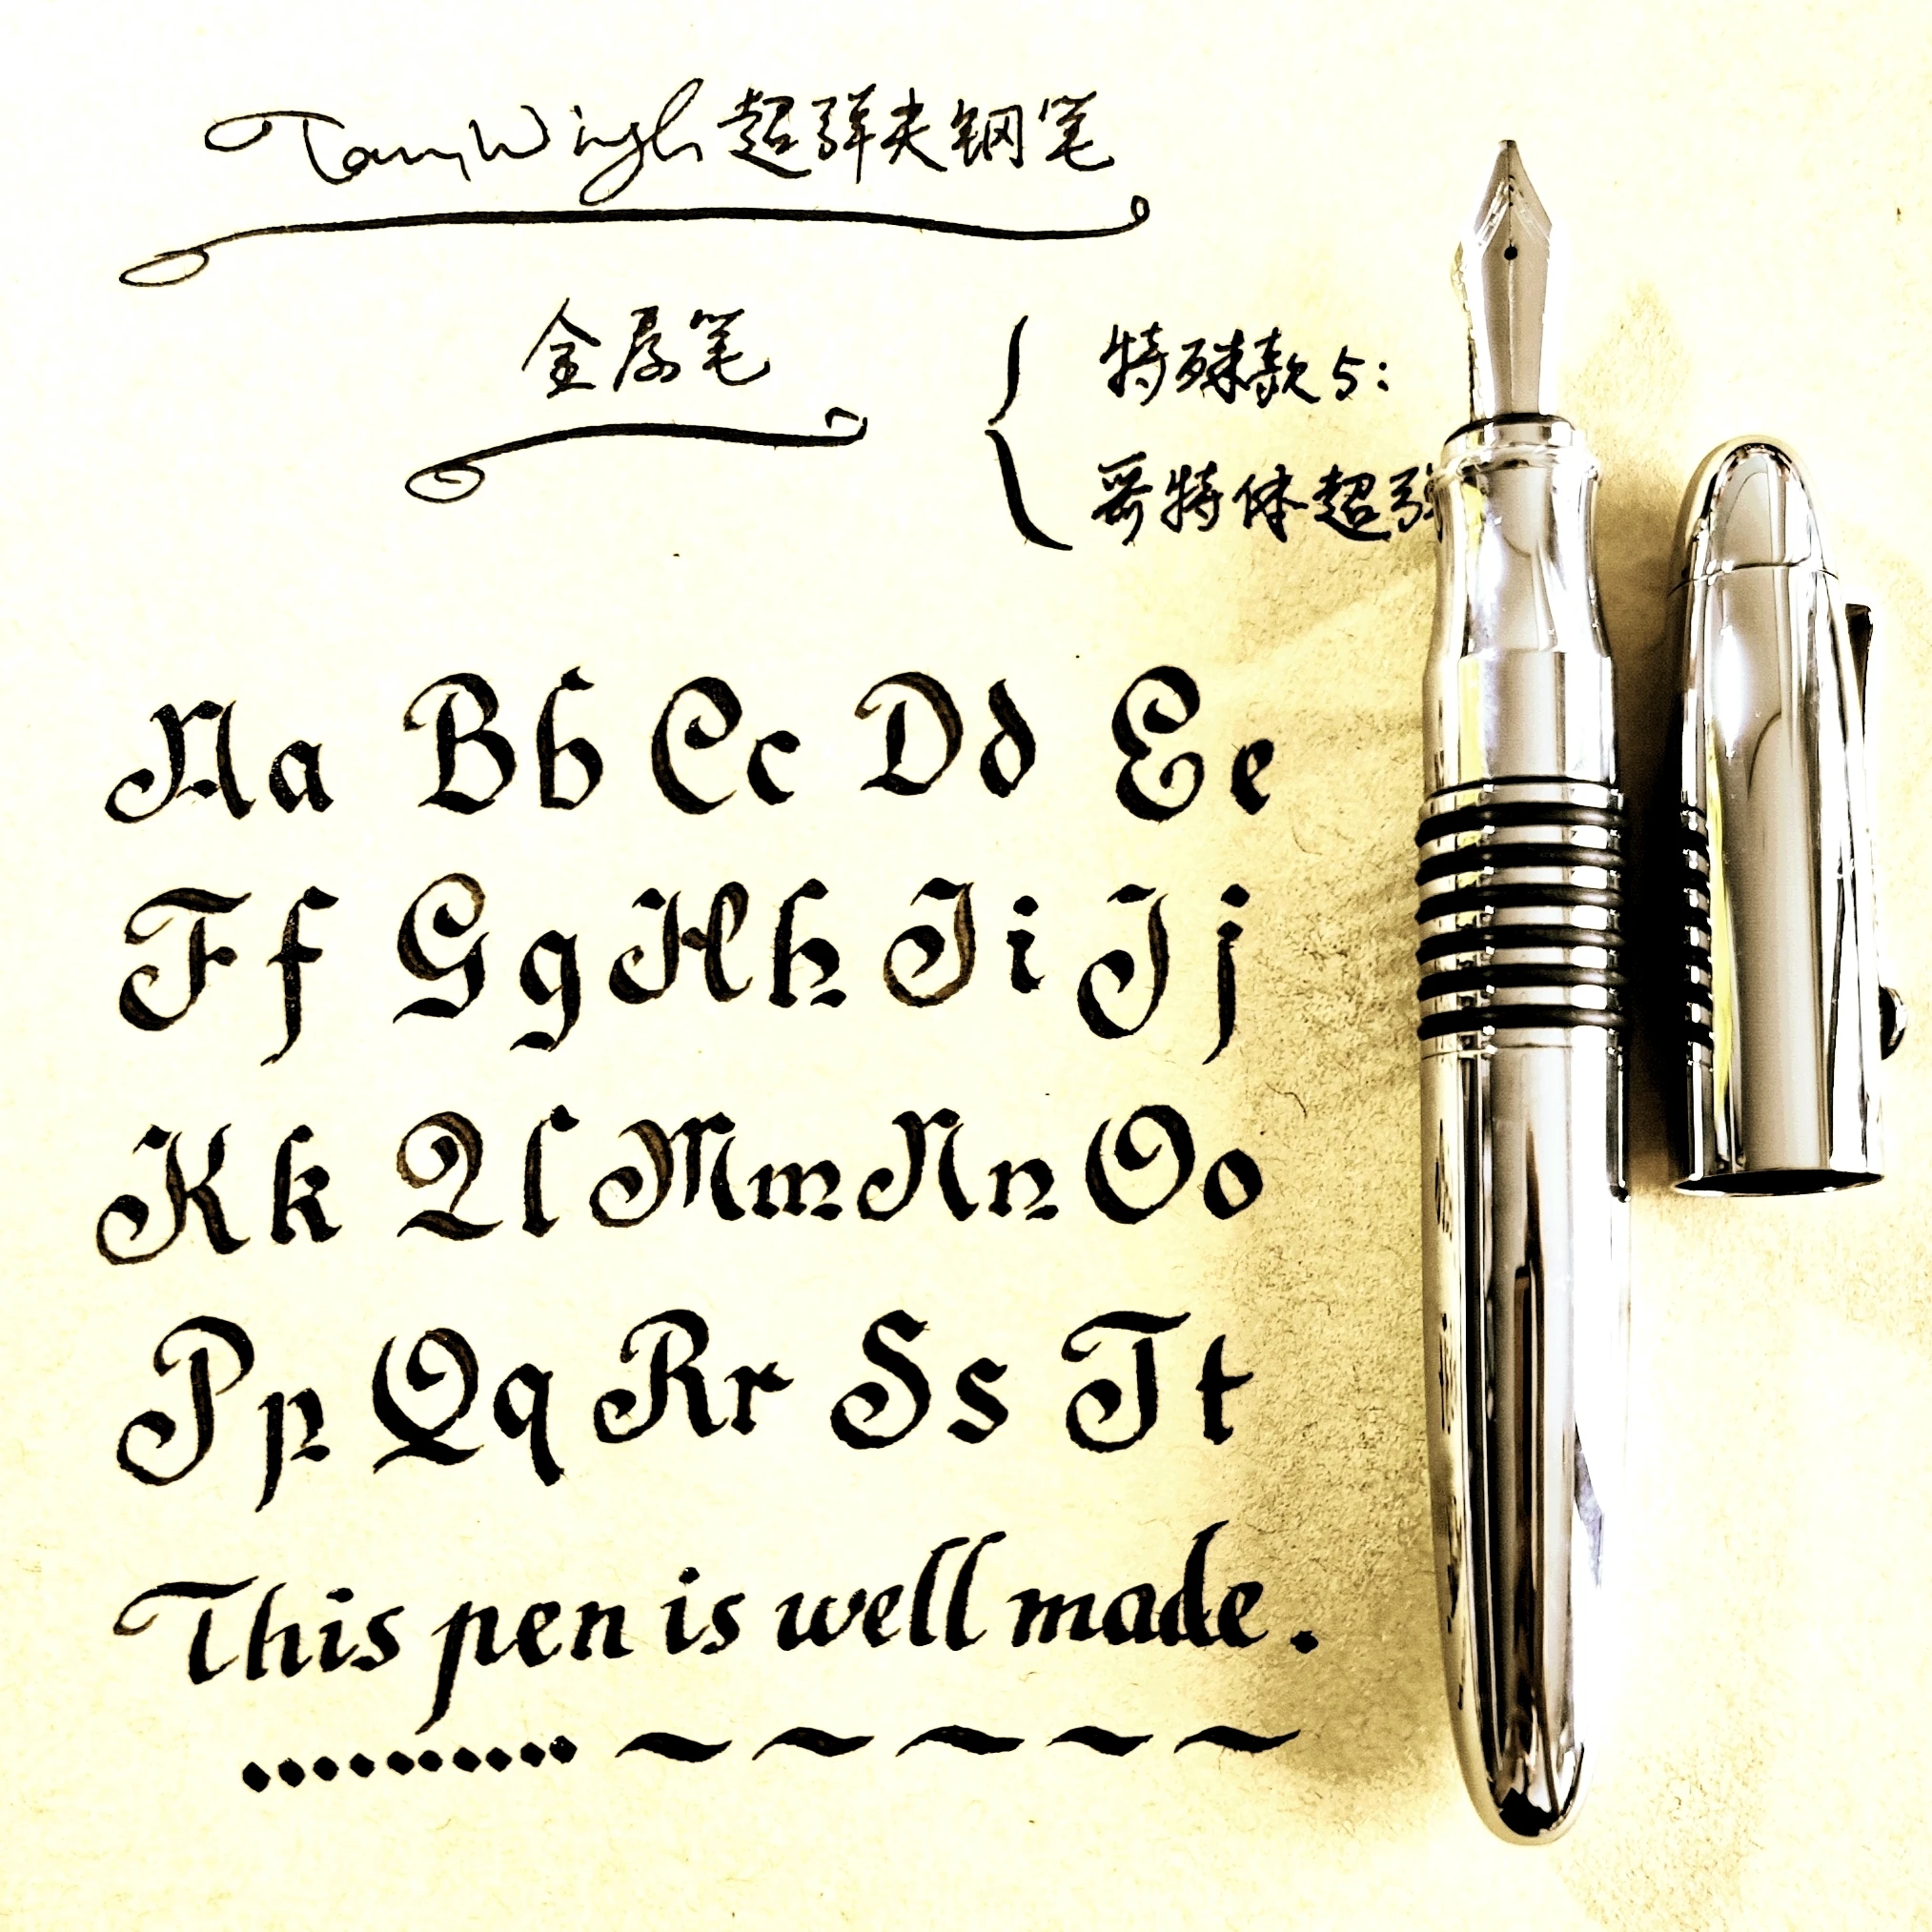 TonyWingh超弹尖钢笔
金属笔
特殊款5:
哥特体超弹
Aa Bb Cc Dd Ee
Ff Gg Hh Ii Jj
Kk Ll Mm Nn Oo
Pp Qq Rr Ss Tt
This pen is well made.